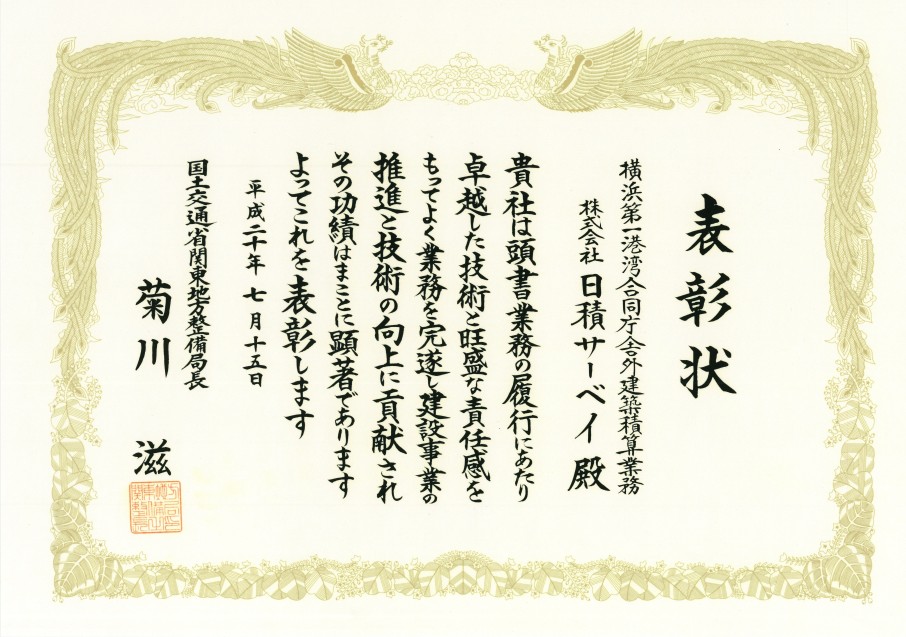 表彰状
横浜第一港湾合同庁舎外建築積算業務
株式会社 日積サーベイ 殿
貴社は頭書業務の履行にあたり
卓越した技術と旺盛な責任感を
もってよく業務を完遂し建設事業の
推進と技術の向上に貢献され
その功績はまことに顕著であります
よってこれを表彰します
平成二十年 七月十五日
国土交通省関東地方整備局長
菊川 滋